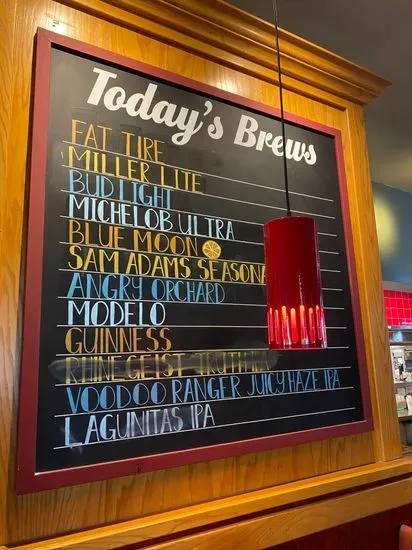 Today's Brews
FAT TIRE
MILLER LITE
BUD LIGHT
MICHELOB ULTRA
BLUE MOON
SAM ADAMS SEASONA
ANGRY ORCHARD
MODELO
GUINNESS
RHINEGEIST TRUTH IPA
VOODOO RANGER JUICY HAZE IPA
LAGUNITAS IPA